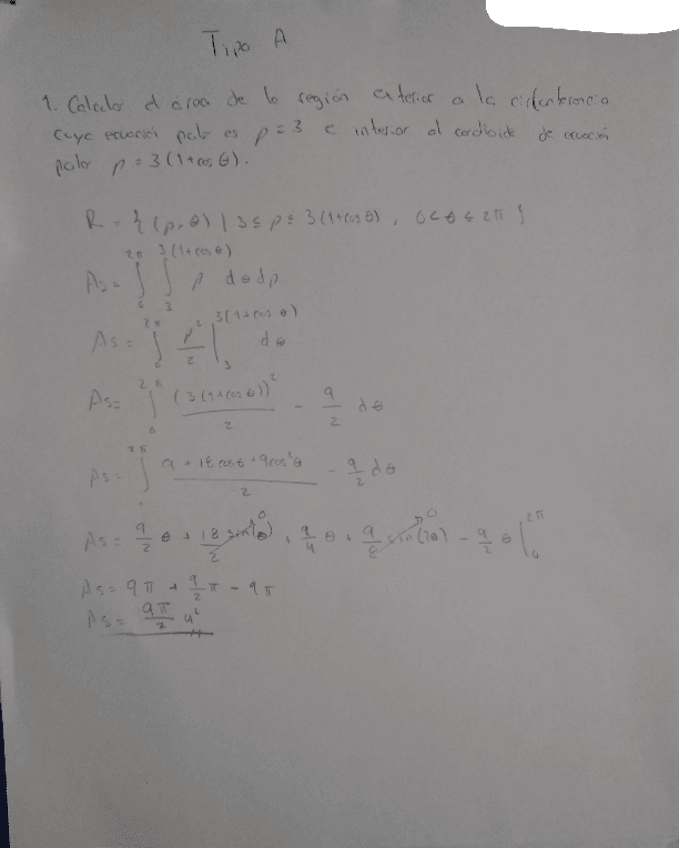 Tipo A
1. Calcular el área de la región exterior a la circunferencia
cuya ecuación polar es ρ = 3 e interior al cardioide de ecuación
polar ρ = 3(1+cos θ).
R = {(ρ,θ) | 3 ≤ ρ ≤ 3(1+cos θ), 0 ≤ θ ≤ 2π}
As = ∫₀^{2π} ∫₃^{3(1+cos θ)} ρ dθ dρ
As = ∫₀^{2π} ρ²/2 |₃^{3(1+cos θ)} dθ
As = ∫₀^{2π} (3(1+cos θ))²/2 - 9/2 dθ
As = ∫₀^{2π} (9 + 18 cos θ + 9 cos² θ)/2 - 9/2 dθ
As = 9/2 θ + 18/2 sin(θ) → 0 + 9/4 θ + 9/8 sin(2θ) → 0 - 9/2 θ |₀^{2π}
As = 9π + 9/2 π - 9π
As = 9π/2 u²